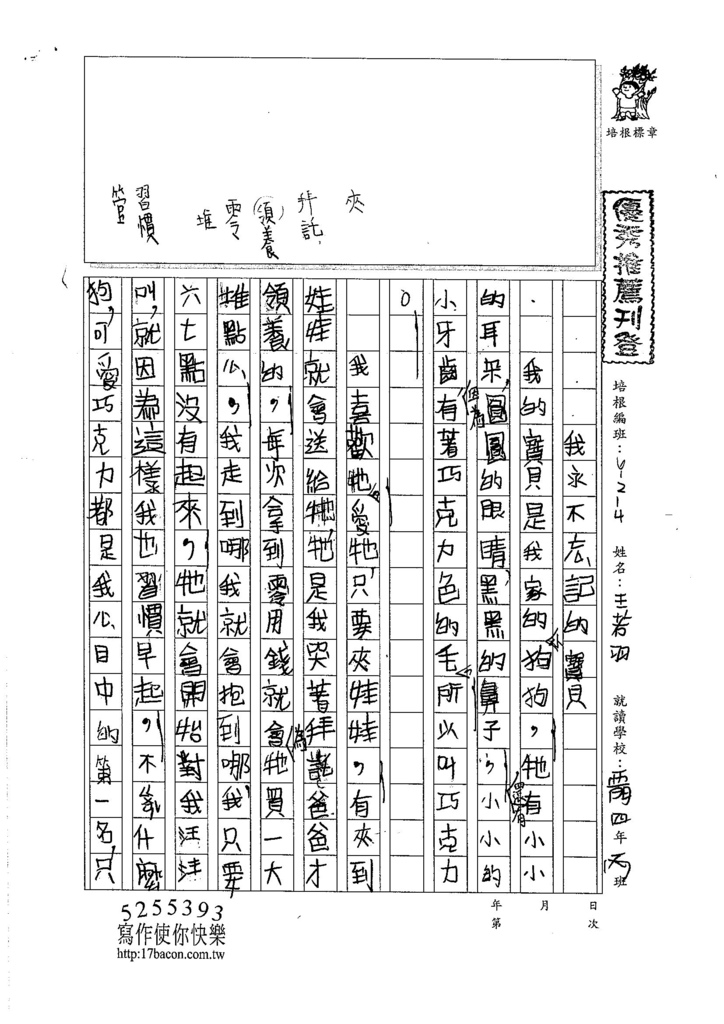 培根標章
優秀推薦刊登
培根編班：V214 姓名：王若羽 就讀學校： 四年丙班
月 日
年 第 次
夾
拜託
領養
零
堆
習慣
管
我永不忘記的寶貝
我的寶貝是我家的狗狗，牠還有小小
的耳朵，圓圓的眼睛，黑黑的鼻子，小小的
小牙齒因為有著巧克力色的毛所以叫巧克力
。
我喜歡牠愛牠，只要夾娃娃，有夾到
娃娃就會送給牠，牠是我哭著拜託爸爸才
領養的，每次拿到零用錢就會為牠買一大
堆點心，我走到哪我就會抱到哪，我只要
六七點沒有起來，牠就會開始對我汪汪
叫，就因為這樣我也習慣早起，不管什麼
狗，可愛巧克力都是我心目中的第一名，只
5255393
寫作使你快樂
http:17bacon.com.tw